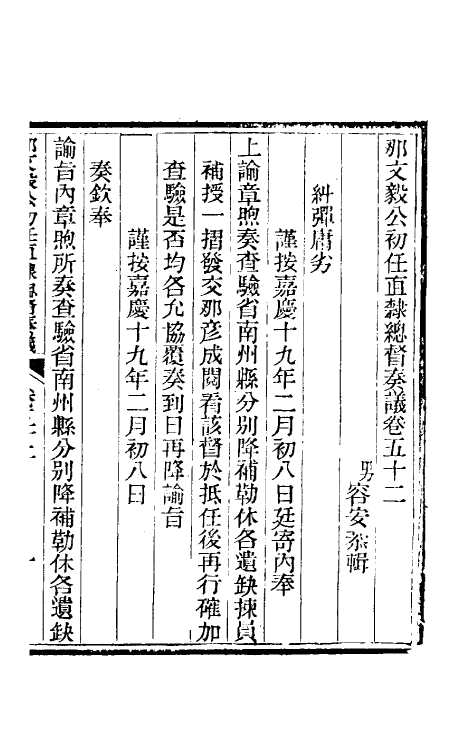 那文毅公初任直隸總督奏議卷五十二
男容安恭輯
糾彈庸劣
謹按嘉慶十九年二月初八日廷寄內奉
上諭章煦奏查驗省南州縣分別降補勒休各遺缺揀員
補授一摺發交那彥成閱看該督於抵任後再行確加
查驗是否均各允協覆奏到日再降諭旨
謹按嘉慶十九年二月初八日
奏欽奉
諭旨內章煦所奏查驗省南州縣分別降補勒休各遺缺
那文毅公初任直隸總督奏議
一